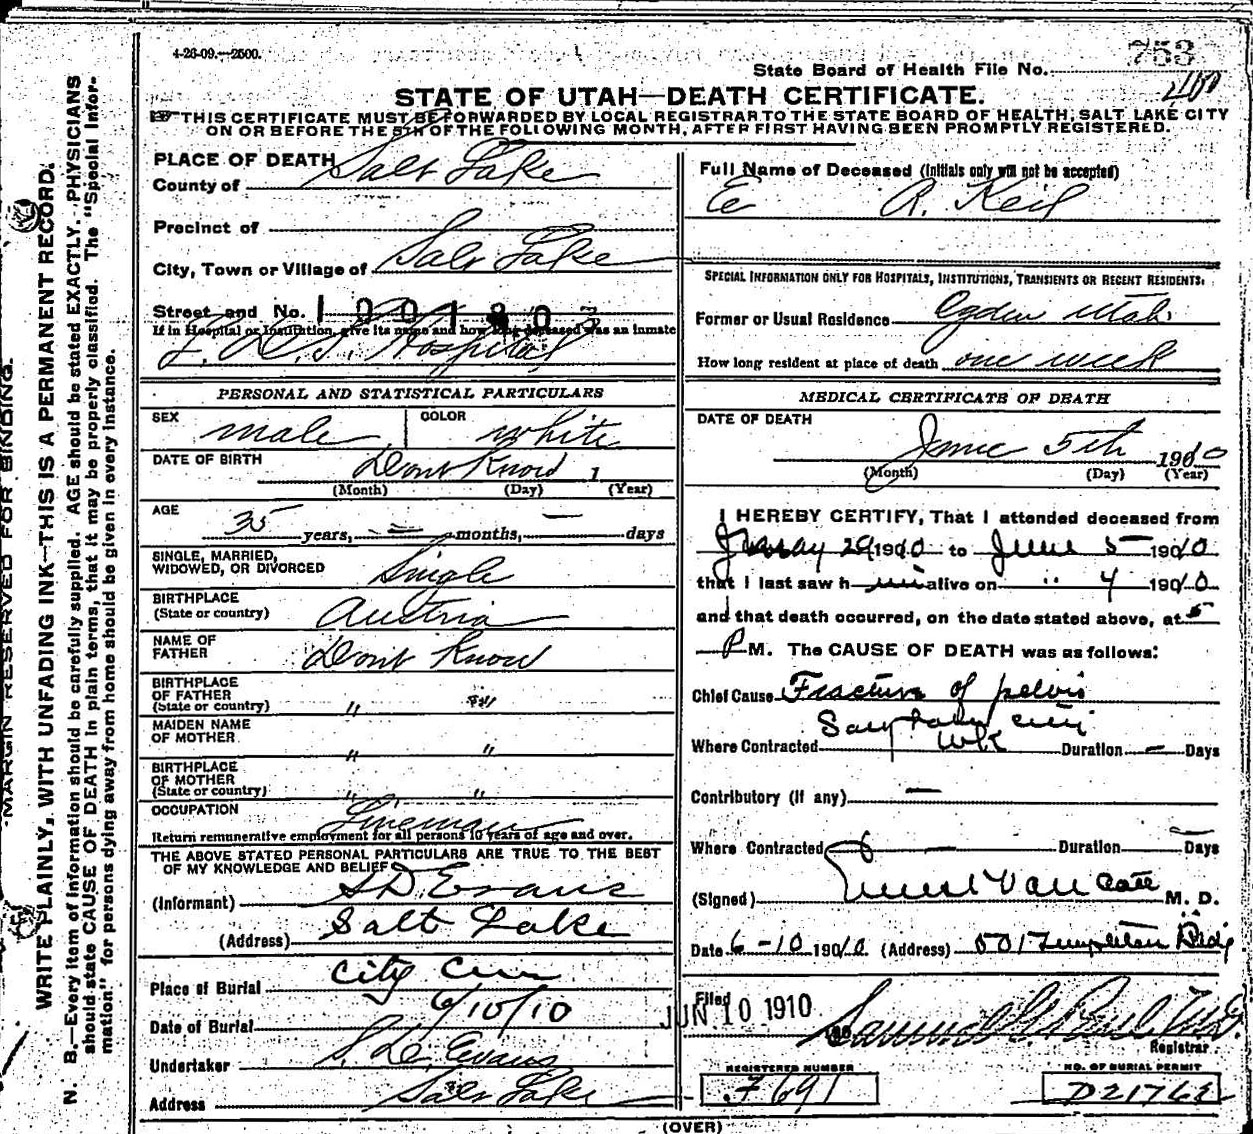 4-26-09.—2500.
753
State Board of Health File No.
400
STATE OF UTAH—DEATH CERTIFICATE.
THIS CERTIFICATE MUST BE FORWARDED BY LOCAL REGISTRAR TO THE STATE BOARD OF HEALTH, SALT LAKE CITY
ON OR BEFORE THE 5TH OF THE FOLLOWING MONTH, AFTER FIRST HAVING BEEN PROMPTLY REGISTERED.
PLACE OF DEATH
County of Salt Lake
Precinct of
City, Town or Village of Salt Lake
Street and No. 1001803
If in Hospital or Institution, give its name and how long deceased was an inmate
L. D. S. Hospital
PERSONAL AND STATISTICAL PARTICULARS
SEX male COLOR white
DATE OF BIRTH Dont Know 1
(Month) (Day) (Year)
AGE
35 years, — months, — days
SINGLE, MARRIED,
WIDOWED, OR DIVORCED Single
BIRTHPLACE
(State or country) Austria
NAME OF
FATHER Dont Know
BIRTHPLACE
OF FATHER
(State or country) " "
MAIDEN NAME
OF MOTHER " "
BIRTHPLACE
OF MOTHER
(State or country) " "
OCCUPATION Lineman
Return remunerative employment for all persons 10 years of age and over.
THE ABOVE STATED PERSONAL PARTICULARS ARE TRUE TO THE BEST
OF MY KNOWLEDGE AND BELIEF
(Informant) S D Evans
(Address) Salt Lake
Place of Burial City Cem
Date of Burial 6/10/10
Undertaker S. D. Evans
Address Salt Lake
Full Name of Deceased (Initials only will not be accepted)
E A. Keil
SPECIAL INFORMATION ONLY FOR HOSPITALS, INSTITUTIONS, TRANSIENTS OR RECENT RESIDENTS:
Former or Usual Residence Ogden Utah
How long resident at place of death one week
MEDICAL CERTIFICATE OF DEATH
DATE OF DEATH
June 5th 1910
(Month) (Day) (Year)
I HEREBY CERTIFY, That I attended deceased from
May 29 1910 to June 5 1910
that I last saw him alive on " 4 1910
and that death occurred, on the date stated above, at 5
P M. The CAUSE OF DEATH was as follows:
Chief Cause Fracture of pelvis
Salt Lake City
Where Contracted Duration — Days
Contributory (if any) —
Where Contracted — Duration — Days
(Signed) Ernest Van Cott M. D.
Date 6-10 1910 (Address) 501 Templeton Bldg
Filed JUN 10 1910
Registrar
REGISTERED NUMBER
NO. OF BURIAL PERMIT
D2176
(OVER)
MARGIN RESERVED FOR BINDING.
WRITE PLAINLY, WITH UNFADING INK—THIS IS A PERMANENT RECORD.
N. B.—Every item of information should be carefully supplied. AGE should be stated EXACTLY. PHYSICIANS
should state CAUSE OF DEATH in plain terms, that it may be properly classified. The "Special Infor-
mation" for persons dying away from home should be given in every instance.